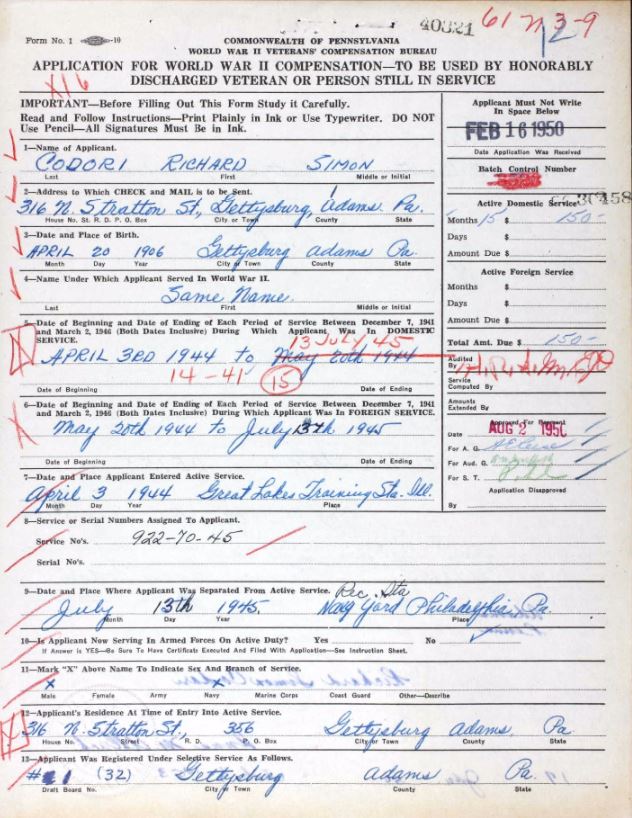 Form No. 1 -10
40321
61 M 3-9
12
COMMONWEALTH OF PENNSYLVANIA
WORLD WAR II VETERANS' COMPENSATION BUREAU
APPLICATION FOR WORLD WAR II COMPENSATION—TO BE USED BY HONORABLY
DISCHARGED VETERAN OR PERSON STILL IN SERVICE
X16
IMPORTANT—Before Filling Out This Form Study it Carefully.
Read and Follow Instructions—Print Plainly in Ink or Use Typewriter. DO NOT
Use Pencil—All Signatures Must Be in Ink.
1—Name of Applicant.
CODORI RICHARD SIMON
Last First Middle or Initial
2—Address to Which CHECK and MAIL is to be Sent.
316 N. Stratton St., Gettysburg, Adams Pa.
House No. St. R. D. P. O. Box City or Town County State
3—Date and Place of Birth.
APRIL 20 1906 Gettysburg Adams Pa.
Month Day Year City or Town County State
4—Name Under Which Applicant Served In World War II.
Same Name.
Last First Middle or Initial
5—Date of Beginning and Date of Ending of Each Period of Service Between December 7, 1941
and March 2, 1946 (Both Dates Inclusive) During Which Applicant Was In DOMESTIC
SERVICE.
13 July 45
APRIL 3RD 1944 to May 20th 1944
14-41 15
Date of Beginning Date of Ending
6—Date of Beginning and Date of Ending of Each Period of Service Between December 7, 1941
and March 2, 1946 (Both Dates Inclusive) During Which Applicant Was in FOREIGN SERVICE.
May 20th 1944 to July 13th 1945
Date of Beginning Date of Ending
7—Date and Place Applicant Entered Active Service.
April 3 1944 Great Lakes Training Sta. Ill.
Month Day Year Place
Applicant Must Not Write
In Space Below
FEB 16 1950
Date Application Was Received
Batch Control Number
Active Domestic Service
Months 15 $ 150-
Days $
Amount Due $
Active Foreign Service
Months $
Days $
Amount Due $
Total Amt. Due $ 150-
Audited
By
Service
Computed By
Amounts
Extended By
Approved For Payment
Date AUG 2 1950
For A. G.
For Aud. G.
For S. T.
Application Disapproved
By
8—Service or Serial Numbers Assigned To Applicant.
Service No's. 922-70-45
Serial No's.
9—Date and Place Where Applicant Was Separated From Active Service. Rec. Sta
July 13th 1945 Navy Yard Philadelphia Pa
Month Day Year Place
10—Is Applicant Now Serving In Armed Forces On Active Duty? Yes No ✓
If Answer is YES—Be Sure To Have Certificate Executed And Filed With Application—See Instruction Sheet.
11—Mark "X" Above Name To Indicate Sex And Branch of Service.
X X
Male Female Army Navy Marine Corps Coast Guard Other—Describe
12—Applicant's Residence At Time of Entry Into Active Service.
316 N. Stratton St., 356 Gettysburg Adams, Pa.
House No. Street R. D. P. O. Box City or Town County State
13—Applicant Was Registered Under Selective Service As Follows.
#1 (32) Gettysburg Adams Pa.
Draft Board No. City or Town County State